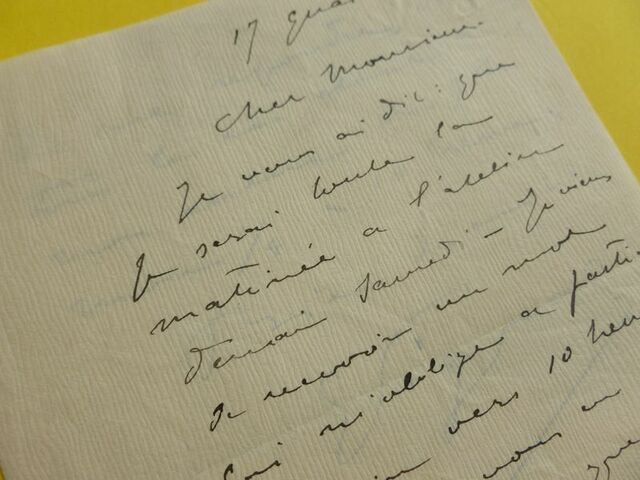 17 quai
Cher Monsieur
Je vous ai dit : que
Je serai toute la
matinée a l'atelier
demain Samedi – Je viens
de recevoir un mot
qui m'oblige a parti
vers 10 heu
vous en